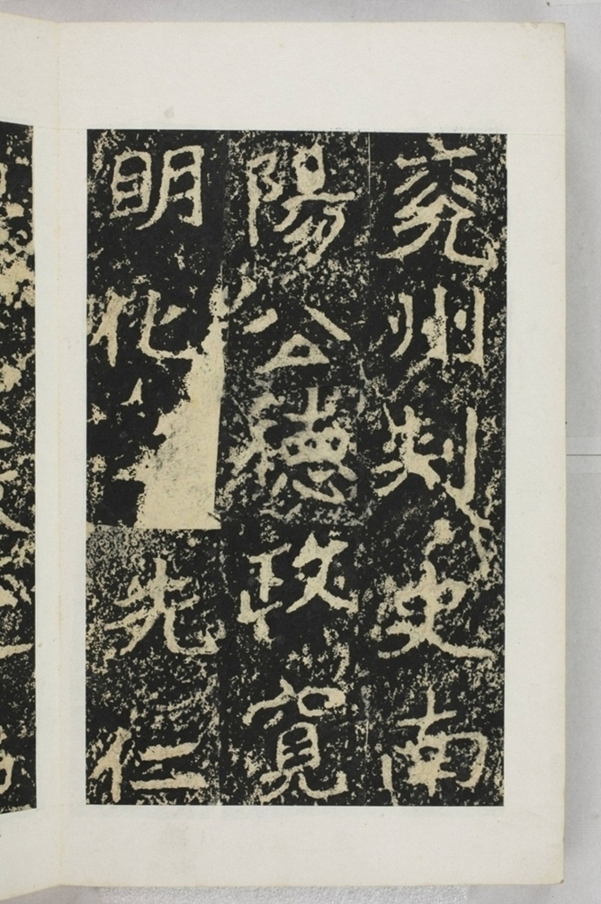 兖州刺史南
陽公德政寬
明化先仁